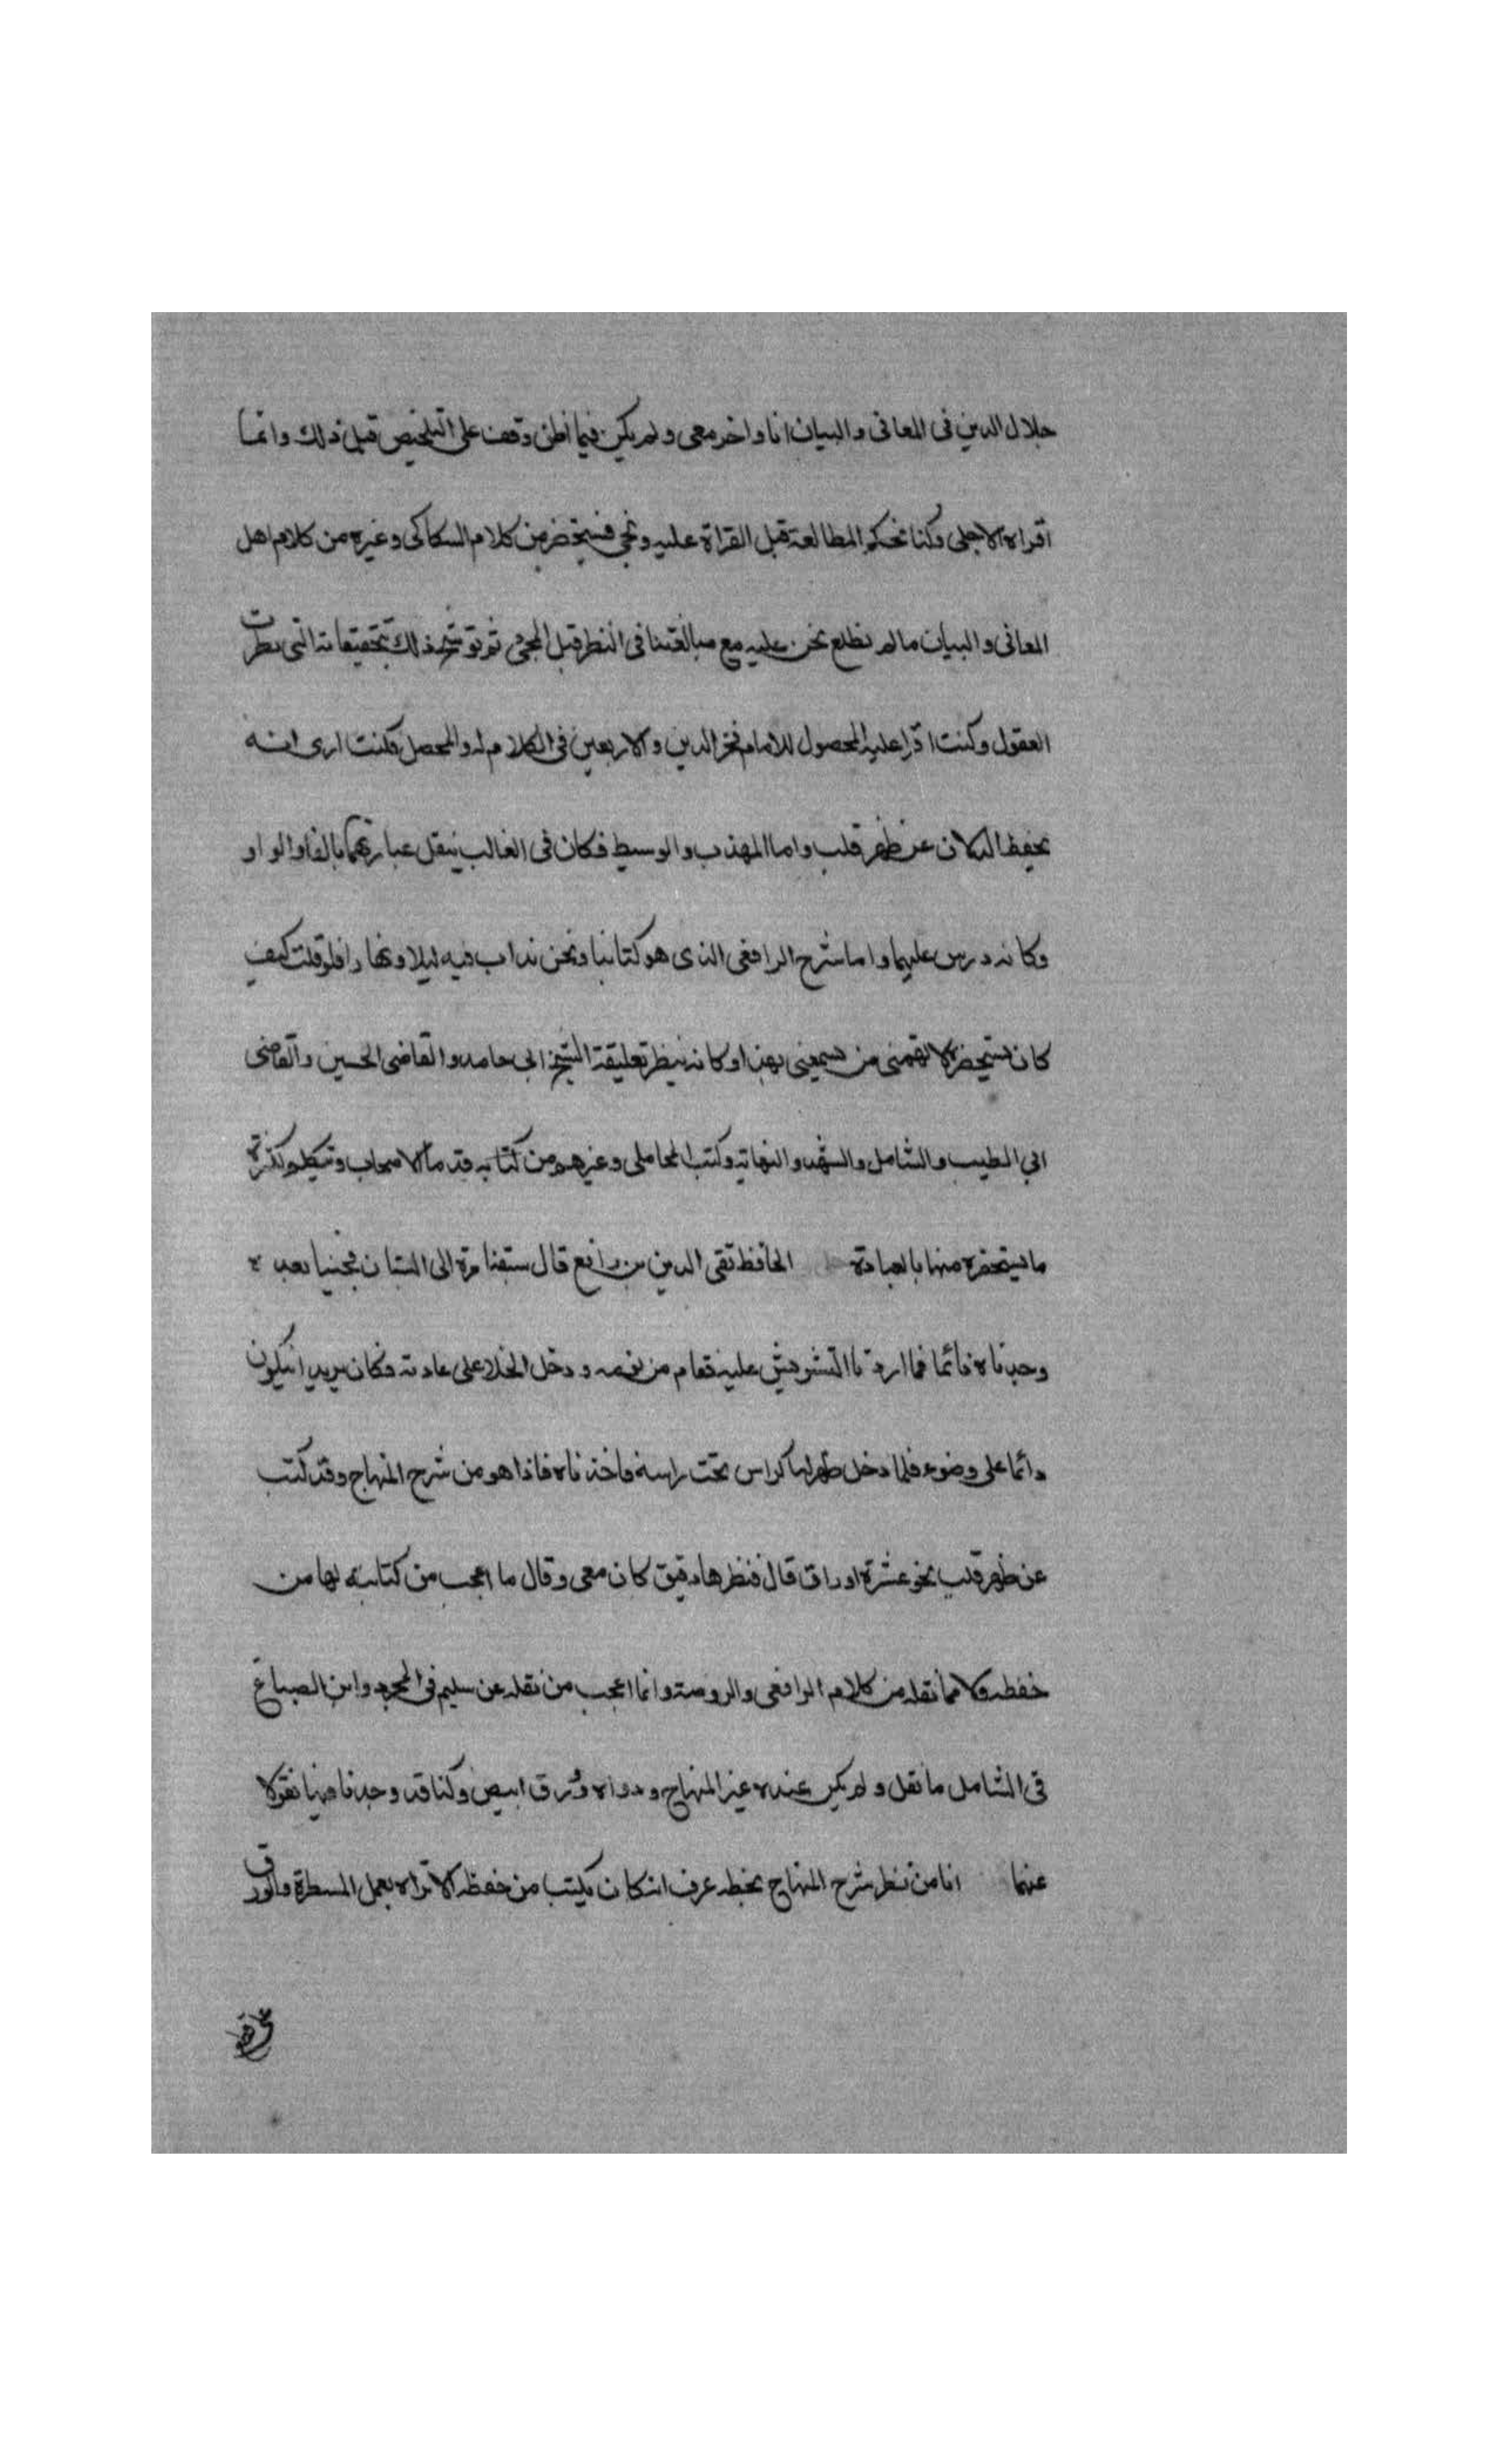 جلال الدين في المعاني والبيان انا واخر معي ولم يكن فيما اظن وقف على التلخيص قبل ذلك وانما
اقراه لاجلي وكنا نحكم المطالعة قبل القراة عليه ونجي فيستحضر من كلام السكاكي وغيره من كلام اهل
المعاني والبيان مالم نطلع نحن عليه مع مبالغتنا في النظر قبل المجي ثم يوشح ذلك بتحقيقاته التي تطرب
العقول وكنت اقرا عليه المحصول للامام فخر الدين والاربعين في الكلام له والمحصل فكنت ارى انه
يحفظ الثلاث عن ظهر قلب واما المهذب والوسيط فكان في الغالب ينقل عبارتهما بالفا والواو
وكانه درس عليهما واما شرح الرافعي الذي هو كتابنا ونحن نداب فيه ليلا ونهارا فلو قلت كيف
كان يستحضره لاتهمني من يسمعني بهذا وكانه ينظر تعليقة الشيخ ابي حامد والقاضي الحسين والقاضي
ابي الطيب والشامل والتتمة والنهاية وكتب المحاملي وغيرهم من كتابه قدما الاصحاب ويتكلم لكثرة
ما يستحضره منها بالعبادة الحافظ تقي الدين بن رافع قال سبقنا مرة الى البستان فجئنا بعده
وجدناه نائما فما اردنا التشويش عليه فقام من نومه ودخل الخلا على عادته وكان يريد ان يكون
دائما على وضوء فلما دخل ظهر لنا كراس تحت راسه فاخذناه فاذا هو من شرح المنهاج وقد كتب
عن ظهر قلب نحو عشرة اوراق قال فنظرها رفيق كان معي وقال ما اعجب من كتابته لها من
حفظه ولا مما نقله من كلام الرافعي والروضة وانما اعجب من نقله عن سليم في المجرد وابن الصباغ
في الشامل ما نقل ولم يكن عنده غير المنهاج ودواه وورق ابيض وكنا قد وجدنا فيها نقولا
عنهما انا من نظر شرح المنهاج بخطه عرف انه كان يكتب من حفظه الا تراه يعمل المسطرة والورق